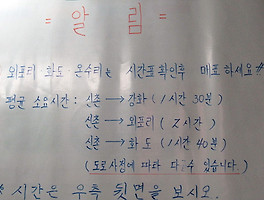 = 알 림 =
외포리 화도 온수티는 시간표확인후 매표하세요#
평균 소요시간 : 신촌 → 강화 (1시간 30분)
신촌 → 외포리 (2시간)
신촌 → 화도 (1시간 40분)
(도로사정에 따라 다 수 있습니다)
* 시간은 우측 뒷면을 보시오.